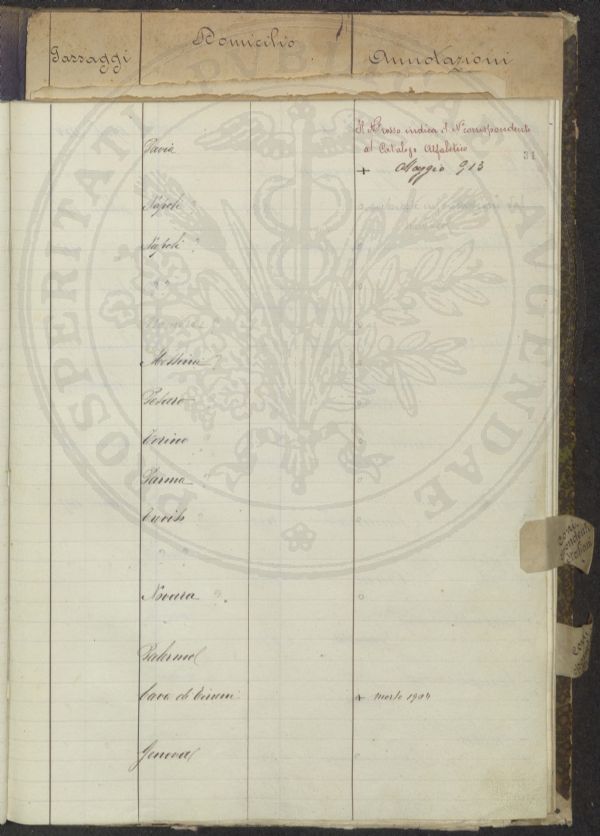 Passaggi Domicilio Annotazioni
Il N° rosso indica il N° corrispondente
al Catalogo Alfabetico
31
Pavia + Maggio 913
Napoli "
Napoli "
" "
Messina "
Pesaro
Torino
Parma "
" "
Novara "
Palermo
Cava di Tirreni + morto 1904
Genova
PROSPERITATI PUBLICAE AUGENDAE